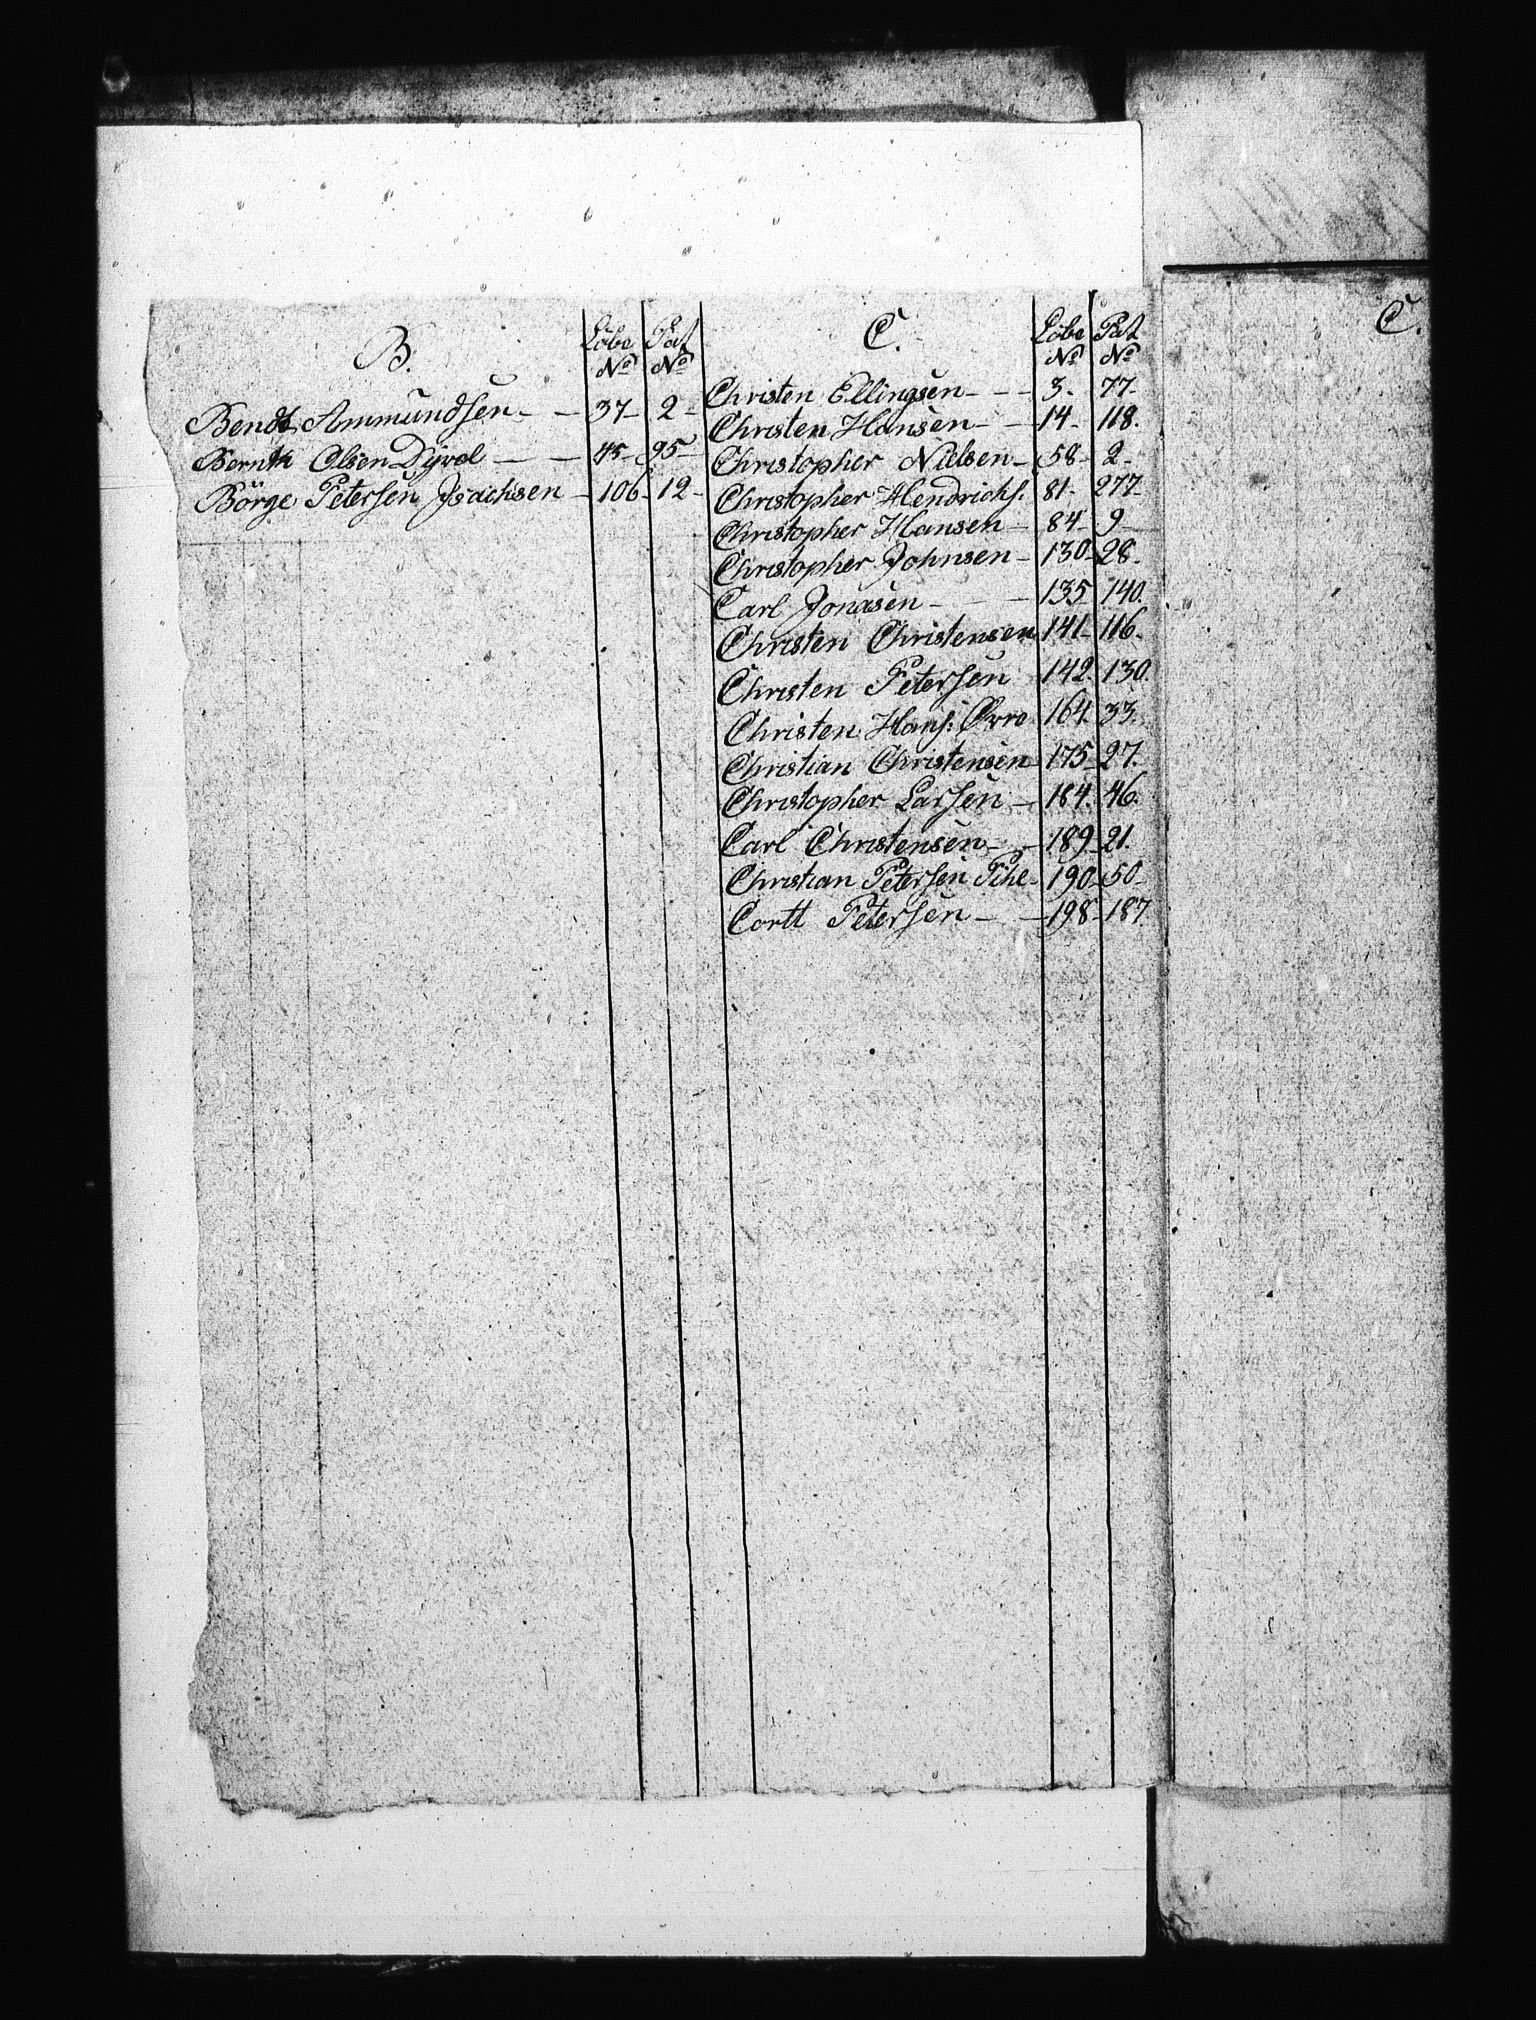 B.
Løbe Pat
No No
Bendt Ammundsen — — 37 — 2 —
Bernth Olsen Dyvel — — 45 — 95 —
Börge Petersen Isachsen — 106 — 12 —
C.
Løbe Pat
No No
Christen Ellingsen — — — 3. 77.
Christen Hansen — — 14 — 118.
Christopher Nielsen — 58 — 2 —
Christopher Hendrichs. 81 — 277 —
Christopher Hansen — 84 — 9 —
Christopher Johnsen — 130 — 28 —
Carl Jonasen — — 135 140.
Christen Christensen 141 — 116 —
Christen Petersen 142. 130.
Christen Hans: Øvre 164. 33.
Christian Christensen 175 — 27.
Christopher Larsen — 184. 46.
Carl Christensen — — 189 — 21.
Christian Petersen Pihl — 190 — 50 —
Cortt Petersen — — 198 — 187.
C.